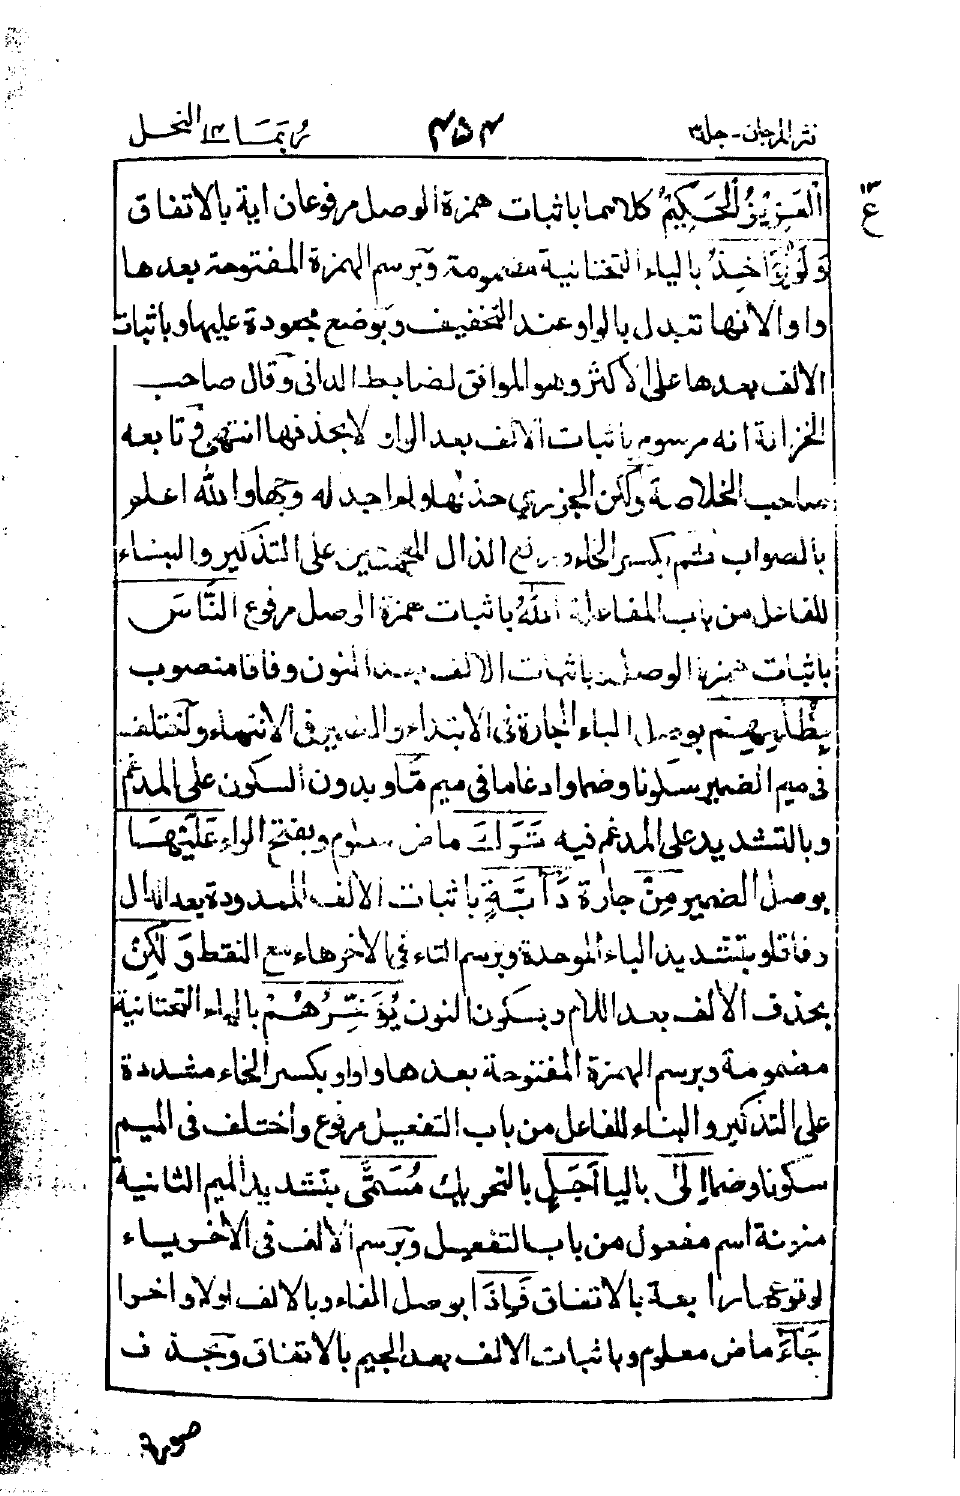 نثر المرجان - جلد ٣ ٤٥٤ ربما ١٤ النحل
ٱلْعَزِيْزُ ٱلْحَكِيْمُ كلاهما باثبات همزة الوصل مرفوعان اية بالاتفاق
١٣
ع
وَلَوْ يُؤَاخِذُ بالياء التحتانية مضمومة وبرسم الهمزة المفتوحة بعدها
واوا لانها تبدل بالواو عند التخفيف وبوضع مجعودة عليها وباثبات
الالف بعدها على الاكثر وهو الموافق لضابط الدانى وقال صاحب
الخزانة انه مرسوم باثبات الالف بعد الواو لا بحذفها انتهى وتابعه
صاحب الخلاصة ولكن الجزري حذفها ولم اجد له وجها والله اعلم
بالصواب ثم بكسر الخاء ورفع الذال المعجمتين على التذكير والبناء
للفاعل من باب المفاعلة ٱللّٰهُ باثبات همزة الوصل مرفوع ٱلنَّاسَ
باثبات همزة الوصل وباثبات الالف بعد النون وفاقا منصوب
بِظُلْمِهِمْ بوصل الباء الجارة فى الابتداء والضمير فى الانتهاء واختلف
فى ميم الضمير سكونا وضما وادغاما فى ميم مَّا وبدون السكون على المدغم
وبالتشديد على المدغم فيه تَرَكَ ماض معلوم وبفتح الراء عَلَيْهَا
بوصل الضمير مِنْ جارة دَآبَّةٍ باثبات الالف الممدودة بعد الدال
وفاقا وبتشديد الباء الموحدة وبرسم التاء فى الاخر هاء مع النقط وَلٰكِنْ
بحذف الالف بعد اللام وبسكون النون يُؤَخِّرُهُمْ بالياء التحتانية
مضمومة وبرسم الهمزة المفتوحة بعدها واوا وبكسر الخاء مشددة
على التذكير والبناء للفاعل من باب التفعيل مرفوع واختلف فى الميم
سكونا وضما اِلٰى بالياء اَجَلٍ بالتحريك مُسَمًّى بتشديد الميم الثانية
منونة اسم مفعول من باب التفعيل وبرسم الالف فى الاخر ياء
لوقوعها رابعة بالاتفاق فَاِذَا بوصل الفاء وبالالف اولا واخرا
جَآءَ ماض معلوم وباثبات الالف بعد الجيم بالاتفاق وبحذف
صورة